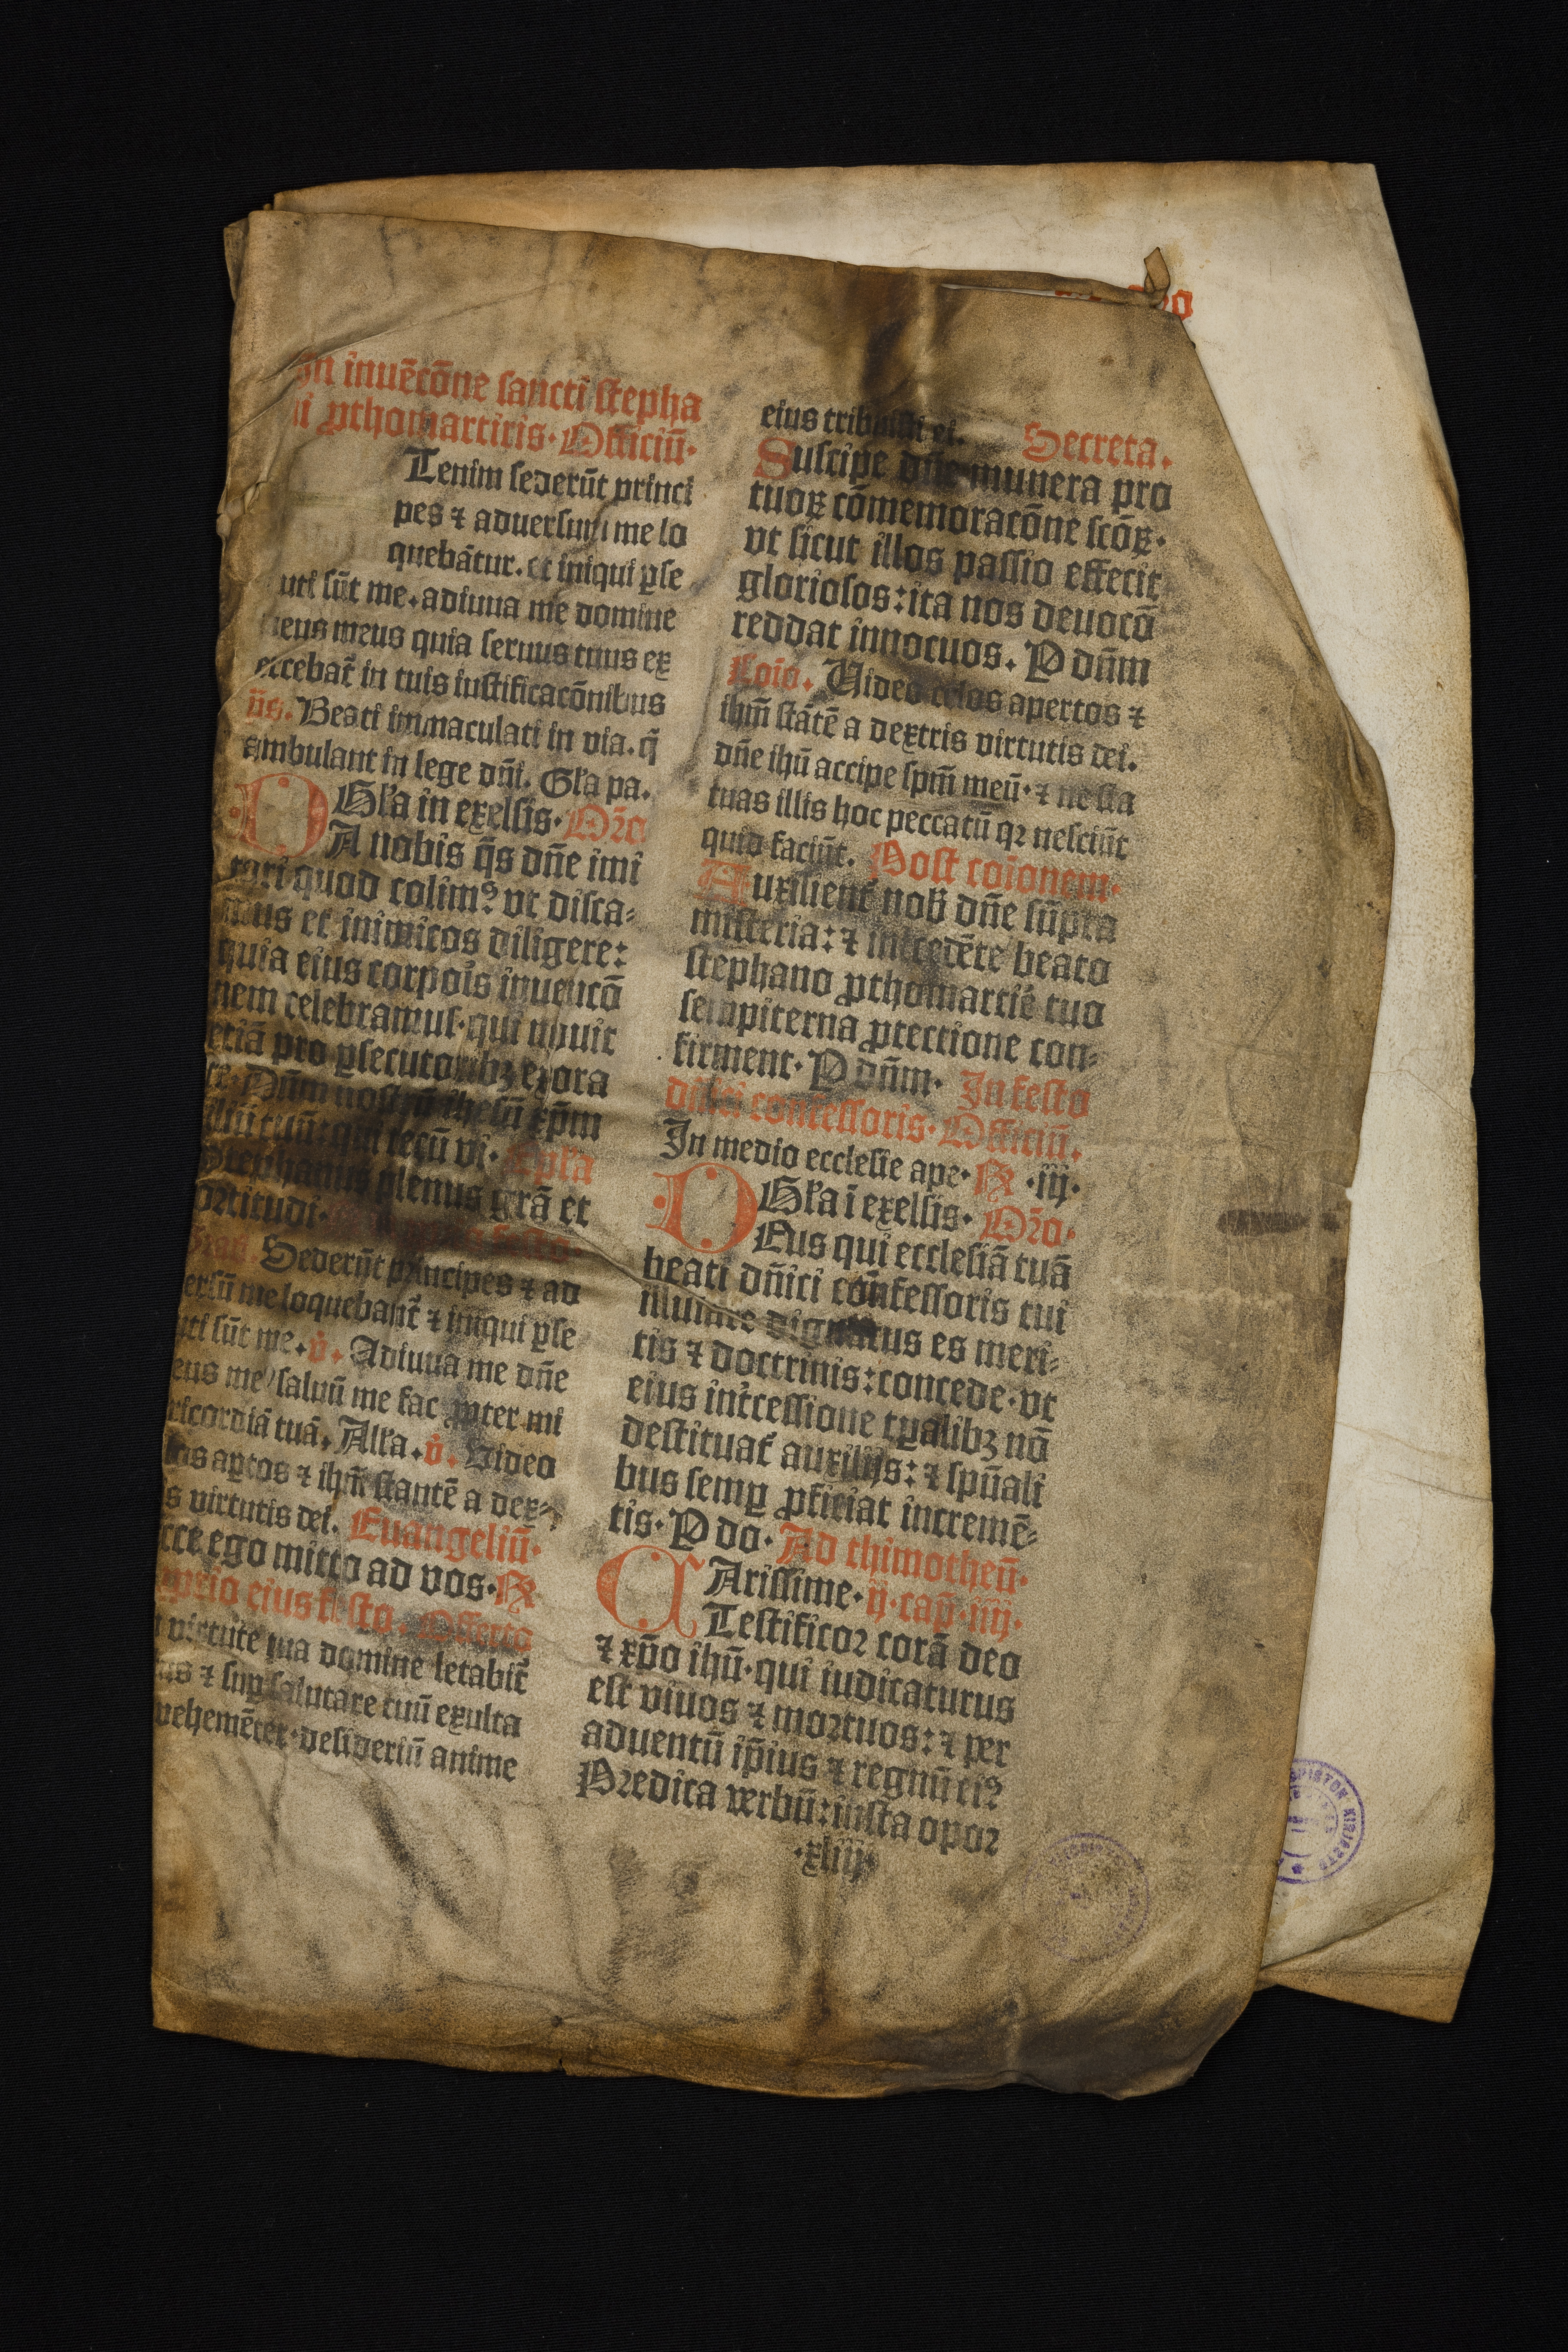 In inuẽcõne sancti stepha
ni ꝓthomartiris. Officiũ.
Tenim sederũt princi
pes ⁊ aduersum me lo
quebãtur. et iniqui ꝑse
uti sũt me. adiuua me domine
deus meus quia seruus tuus ex
ercebat̃ in tuis iustificacõnibus
p̃s. Beati immaculati in via. q̃
ambulant in lege dñi. Gl̃a pa.
Gl̃a in exelsis. Or̃o
DA nobis q̃s dñe imi
tari quod colimꝰ vt disca⸗
mus et inimicos diligere:
quia eius corpoĩs inuencõ
nem celebramus. qui nouit
etiã pro ꝑsecutoribꝫ exora
re. Dñm nostrũ ihesũ xp̃m
filiũ tuũ: qui tecũ vi. Ep̃la
Stephanus plenus grã et
fortitudi.
Grad. Sederũt principes ⁊ ad
uersũ me loquebant̃ ⁊ iniqui ꝑse
cuti sũt me. v̇. Adiuua me dñe
deus meꝰ saluũ me fac ꝓpter mi
sericordiã tuã. All̃a. v̇. Video
celos aꝑtos ⁊ ihm̃ stantẽ a dex⸗
is virtutis dei. Euangeliũ.
Ecce ego mitto ad vos. R̷
eius festo. Offerto
In virtute tua domine letabit̃
us ⁊ suꝑ salutare tuũ exulta
vehemẽter. desideriũ anime
eius tribuisti ei. Secreta.
Suscipe dñe munera pro
tuoꝝ cõmemoracõne scõꝝ.
vt sicut illos passio effecit
gloriosos: ita nos deuocõ
reddat innocuos. P dñm
Coĩo. Uideo celos apertos ⁊
ihm̃ stãtẽ a dextris virtutis dei.
dñe ihũ accipe spm̃ meũ. ⁊ ne sta
tuas illis hoc peccatũ qꝛ nesciũt
quid faciũt. Post coĩonem.
Auxilient̃ nob̃ dñe sũpta
misteria: ⁊ int̃cedẽte beato
stephano ꝓthomartiẽ tuo
sempiterna ꝓtectione con⸗
firment. P dñm. In festo
dñici confessoris. Officiũ.
In medio ecclesie ape. R̷ .iij.
Gl̃a ĩ exelsis. Or̃o.
DEus qui ecclesiã tuã
beati dñici cõnfessoris tui
illuĩare dignatus es meri⸗
tis ⁊ doctrinis: concede. vt
eius int̃cessione tꝑalibꝫ nõ
destituat̃ auxilijs: ⁊ spũali
bus semꝑ ꝓficiat incremẽ⸗
tis. P do. Ad thimotheũ.
CArissime. ij. cap̃. iiij.
Testificoꝛ corã deo
⁊ xp̃o ihũ. qui iudicaturus
est viuos ⁊ moꝛtuos: ⁊ per
aduentũ ip̃ius ⁊ regnũ eiꝰ
Pꝛedica verbũ: insta opoꝛ
.xliiij.